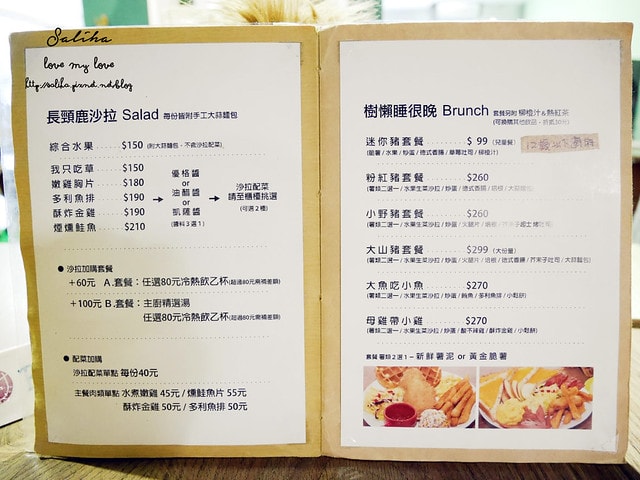 Saliha
love my love
http://saliha.pixnet.net/blog
長頸鹿沙拉 Salad 每份皆附手工大蒜麵包
綜合水果 $150 (附大蒜麵包，不含沙拉配菜)
我只吃草 $150
嫩雞胸片 $180
多利魚排 $190
酥炸金雞 $190
煙燻鮭魚 $210
優格醬
or
油醋醬
or
凱薩醬
(醬料3選1)
沙拉配菜
請至櫃檯挑選
(可選2種)
● 沙拉加購套餐
+60元 A.套餐：任選80元冷熱飲乙杯(超過80元需補差額)
+100元 B.套餐：主廚精選湯
任選80元冷熱飲乙杯(超過80元需補差額)
● 配菜加購
沙拉配菜單點 每份40元
主餐肉類單點 水煮嫩雞 45元 / 燻鮭魚片 55元
酥炸金雞 50元 / 多利魚排 50元
樹懶睡很晚 Brunch 套餐另附 柳橙汁&熱紅茶
(可換購其他飲品，折抵30元)
迷你豬套餐 $ 99 (兒童餐)
(脆薯 / 水果 / 炒蛋 / 德式香腸 / 草莓吐司 / 柳橙汁)
粉紅豬套餐 $260
(薯類二選一 / 水果生菜沙拉 / 炒蛋 / 德式香腸 / 培根 / 大蒜麵包)
小野豬套餐 $260
(薯類二選一 / 水果生菜沙拉 / 炒蛋 / 火腿片
大山豬套餐 $299 (大份量)
(薯類二選一 / 水果生菜沙拉 / 炒蛋 / 火腿片 / 培根 / 德式香腸 / 芥末子吐司 / 大蒜麵包)
大魚吃小魚 $270
(薯類二選一 / 水果生菜沙拉 / 炒蛋 / 鮪魚 / 多利魚排 / 小鬆餅)
母雞帶小雞 $270
(薯類二選一 / 水果生菜沙拉 / 炒蛋 / 酸不辣雞 / 酥炸金雞 / 小鬆餅)
套餐薯類2選1－新鮮薯泥 or 黃金脆薯